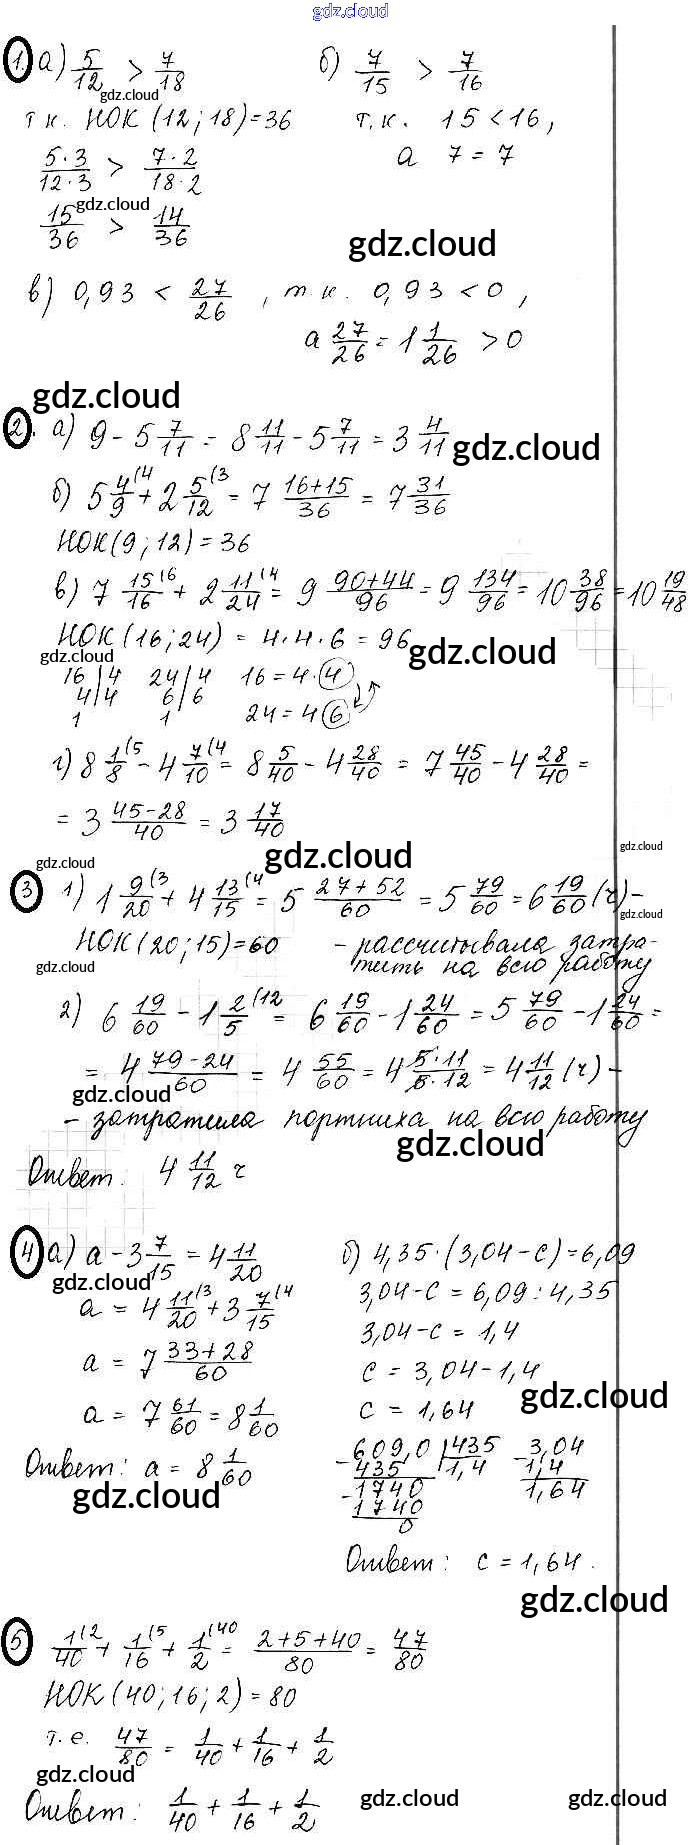 gdz.cloud
1. а) 5/12 > 7/18   б) 7/15 > 7/16
gdz.cloud
т.к. НОК (12; 18) = 36   т.к. 15 < 16,
5·3/12·3 > 7·2/18·2   а 7 = 7
gdz.cloud
15/36 > 14/36
gdz.cloud
в) 0,93 < 27/26, т.к. 0,93 < 0,
а 27/26 = 1 1/26 > 0
gdz.cloud
2. а) 9 - 5 7/11 = 8 11/11 - 5 7/11 = 3 4/11
gdz.cloud
б) 5 4/9 (4 + 2 5/12 (3 = 7 16+15/36 = 7 31/36
НОК (9; 12) = 36
в) 7 15/16 (6 + 2 11/24 (4 = 9 90+44/96 = 9 134/96 = 10 38/96 = 10 19/48
НОК (16; 24) = 4·4·6 = 96
gdz.cloud gdz.cloud
16|4   24|4   16 = 4·4
4|4   6|6
1   1   24 = 4·6
г) 8 1/8 (5 - 4 7/10 (4 = 8 5/40 - 4 28/40 = 7 45/40 - 4 28/40 =
= 3 45-28/40 = 3 17/40
gdz.cloud
gdz.cloud gdz.cloud
3 1) 1 9/20 (3 + 4 13/15 (4 = 5 27+52/60 = 5 79/60 = 6 19/60 (ч) -
gdz.cloud
НОК (20; 15) = 60   - рассчитывала затра-
тить на всю работу
gdz.cloud
2) 6 19/60 - 1 2/5 (12 = 6 19/60 - 1 24/60 = 5 79/60 - 1 24/60 =
= 4 79-24/60 = 4 55/60 = 4 5·11/5·12 = 4 11/12 (ч) -
gdz.cloud
- затратила портниха на всю работу
gdz.cloud
Ответ: 4 11/12 ч
4 а) a - 3 7/15 = 4 11/20   б) 4,35·(3,04 - c) = 6,09
gdz.cloud
a = 4 11/20 (3 + 3 7/15 (4   3,04 - c = 6,09 : 4,35
3,04 - c = 1,4
a = 7 33+28/60   c = 3,04 - 1,4
gdz.cloud
a = 7 61/60 = 8 1/60   c = 1,64
Ответ: a = 8 1/60   - 609,0 | 435   - 3,04
435   1,4   1,4
gdz.cloud   - 1740   1,64
1740
0
Ответ: c = 1,64.
gdz.cloud
5 1/40 (2 + 1/16 (5 + 1/2 (40 = 2+5+40/80 = 47/80
НОК (40; 16; 2) = 80
т.е. 47/80 = 1/40 + 1/16 + 1/2
gdz.cloud
Ответ: 1/40 + 1/16 + 1/2
gdz.cloud gdz.cloud